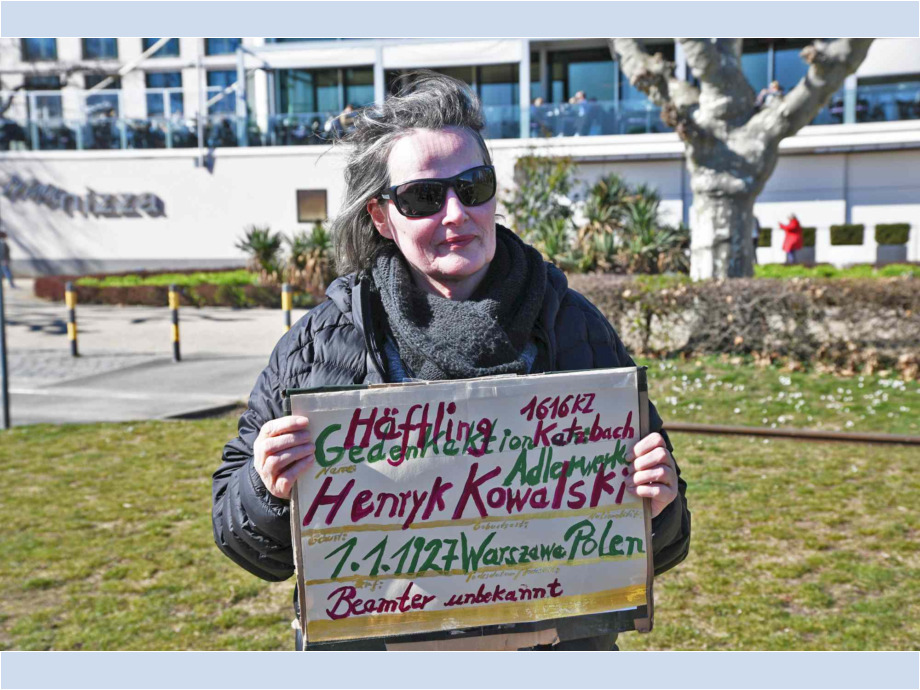 Häftling 1616 KZ
Gedenkaktion Katzbach
Name: Adlerwerke
Henryk Kowalski
Geburtsort: Nationalität
Geburt:
1.1.1927 Warszawa Polen
Beruf:
Beamter unbekannt